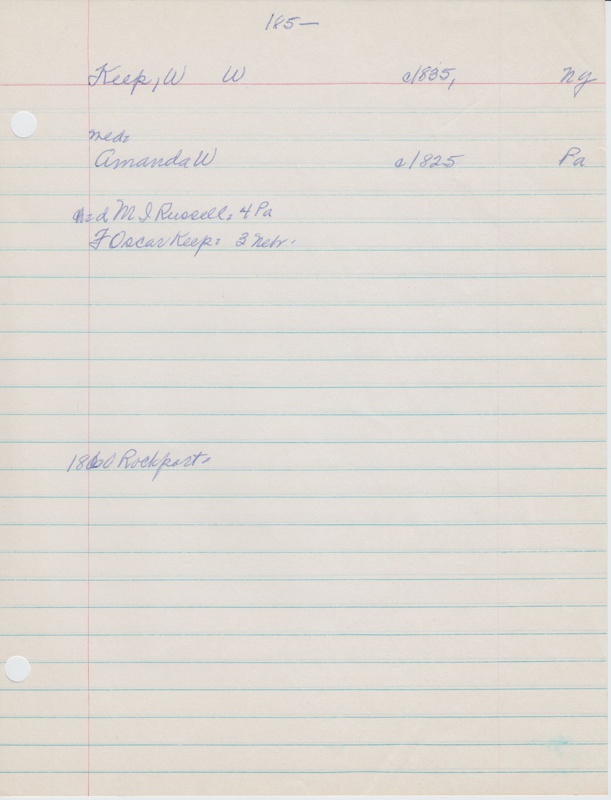 185-
Keep, W W c/835, Ny
med:
Amanda W c/825 Pa
d M J Russell: 4 Pa
F Oscar Keep: 3 Nebr.
1860 Rockport.